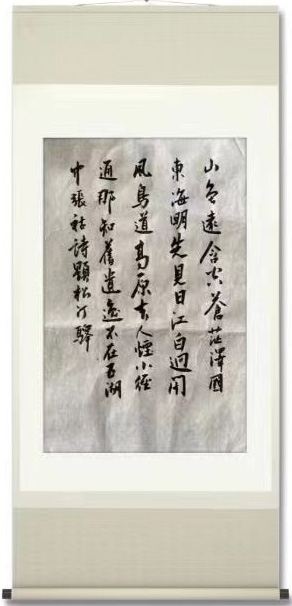 山色遠含空蒼茫澤國
東海明先見日江白迥聞
風鳥道高原去人煙小徑
通那知舊遺逸不在五湖
中張祜詩題松汀驛